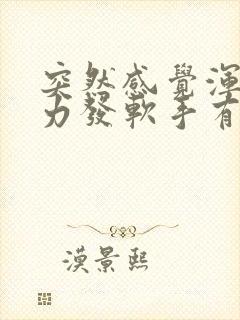 突然感覺渾
力發軟手有
漠景熙